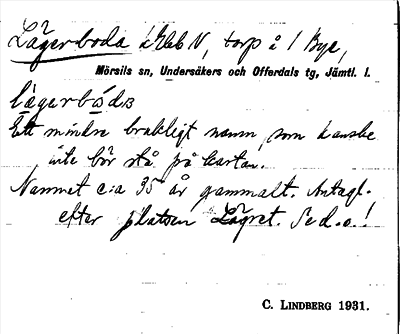 Lägerboda torp å 1 Bye,
Mörsils sn, Undersåkers och Offerdals tg, Jämtl. l.
Ett mindre brukligt namn, som kanske
inte bör stå på kartan.
Namnet c:a 35 år gammalt. Antagl.
efter platsen Lägret. Se d.o.!
C. LINDBERG 1931.